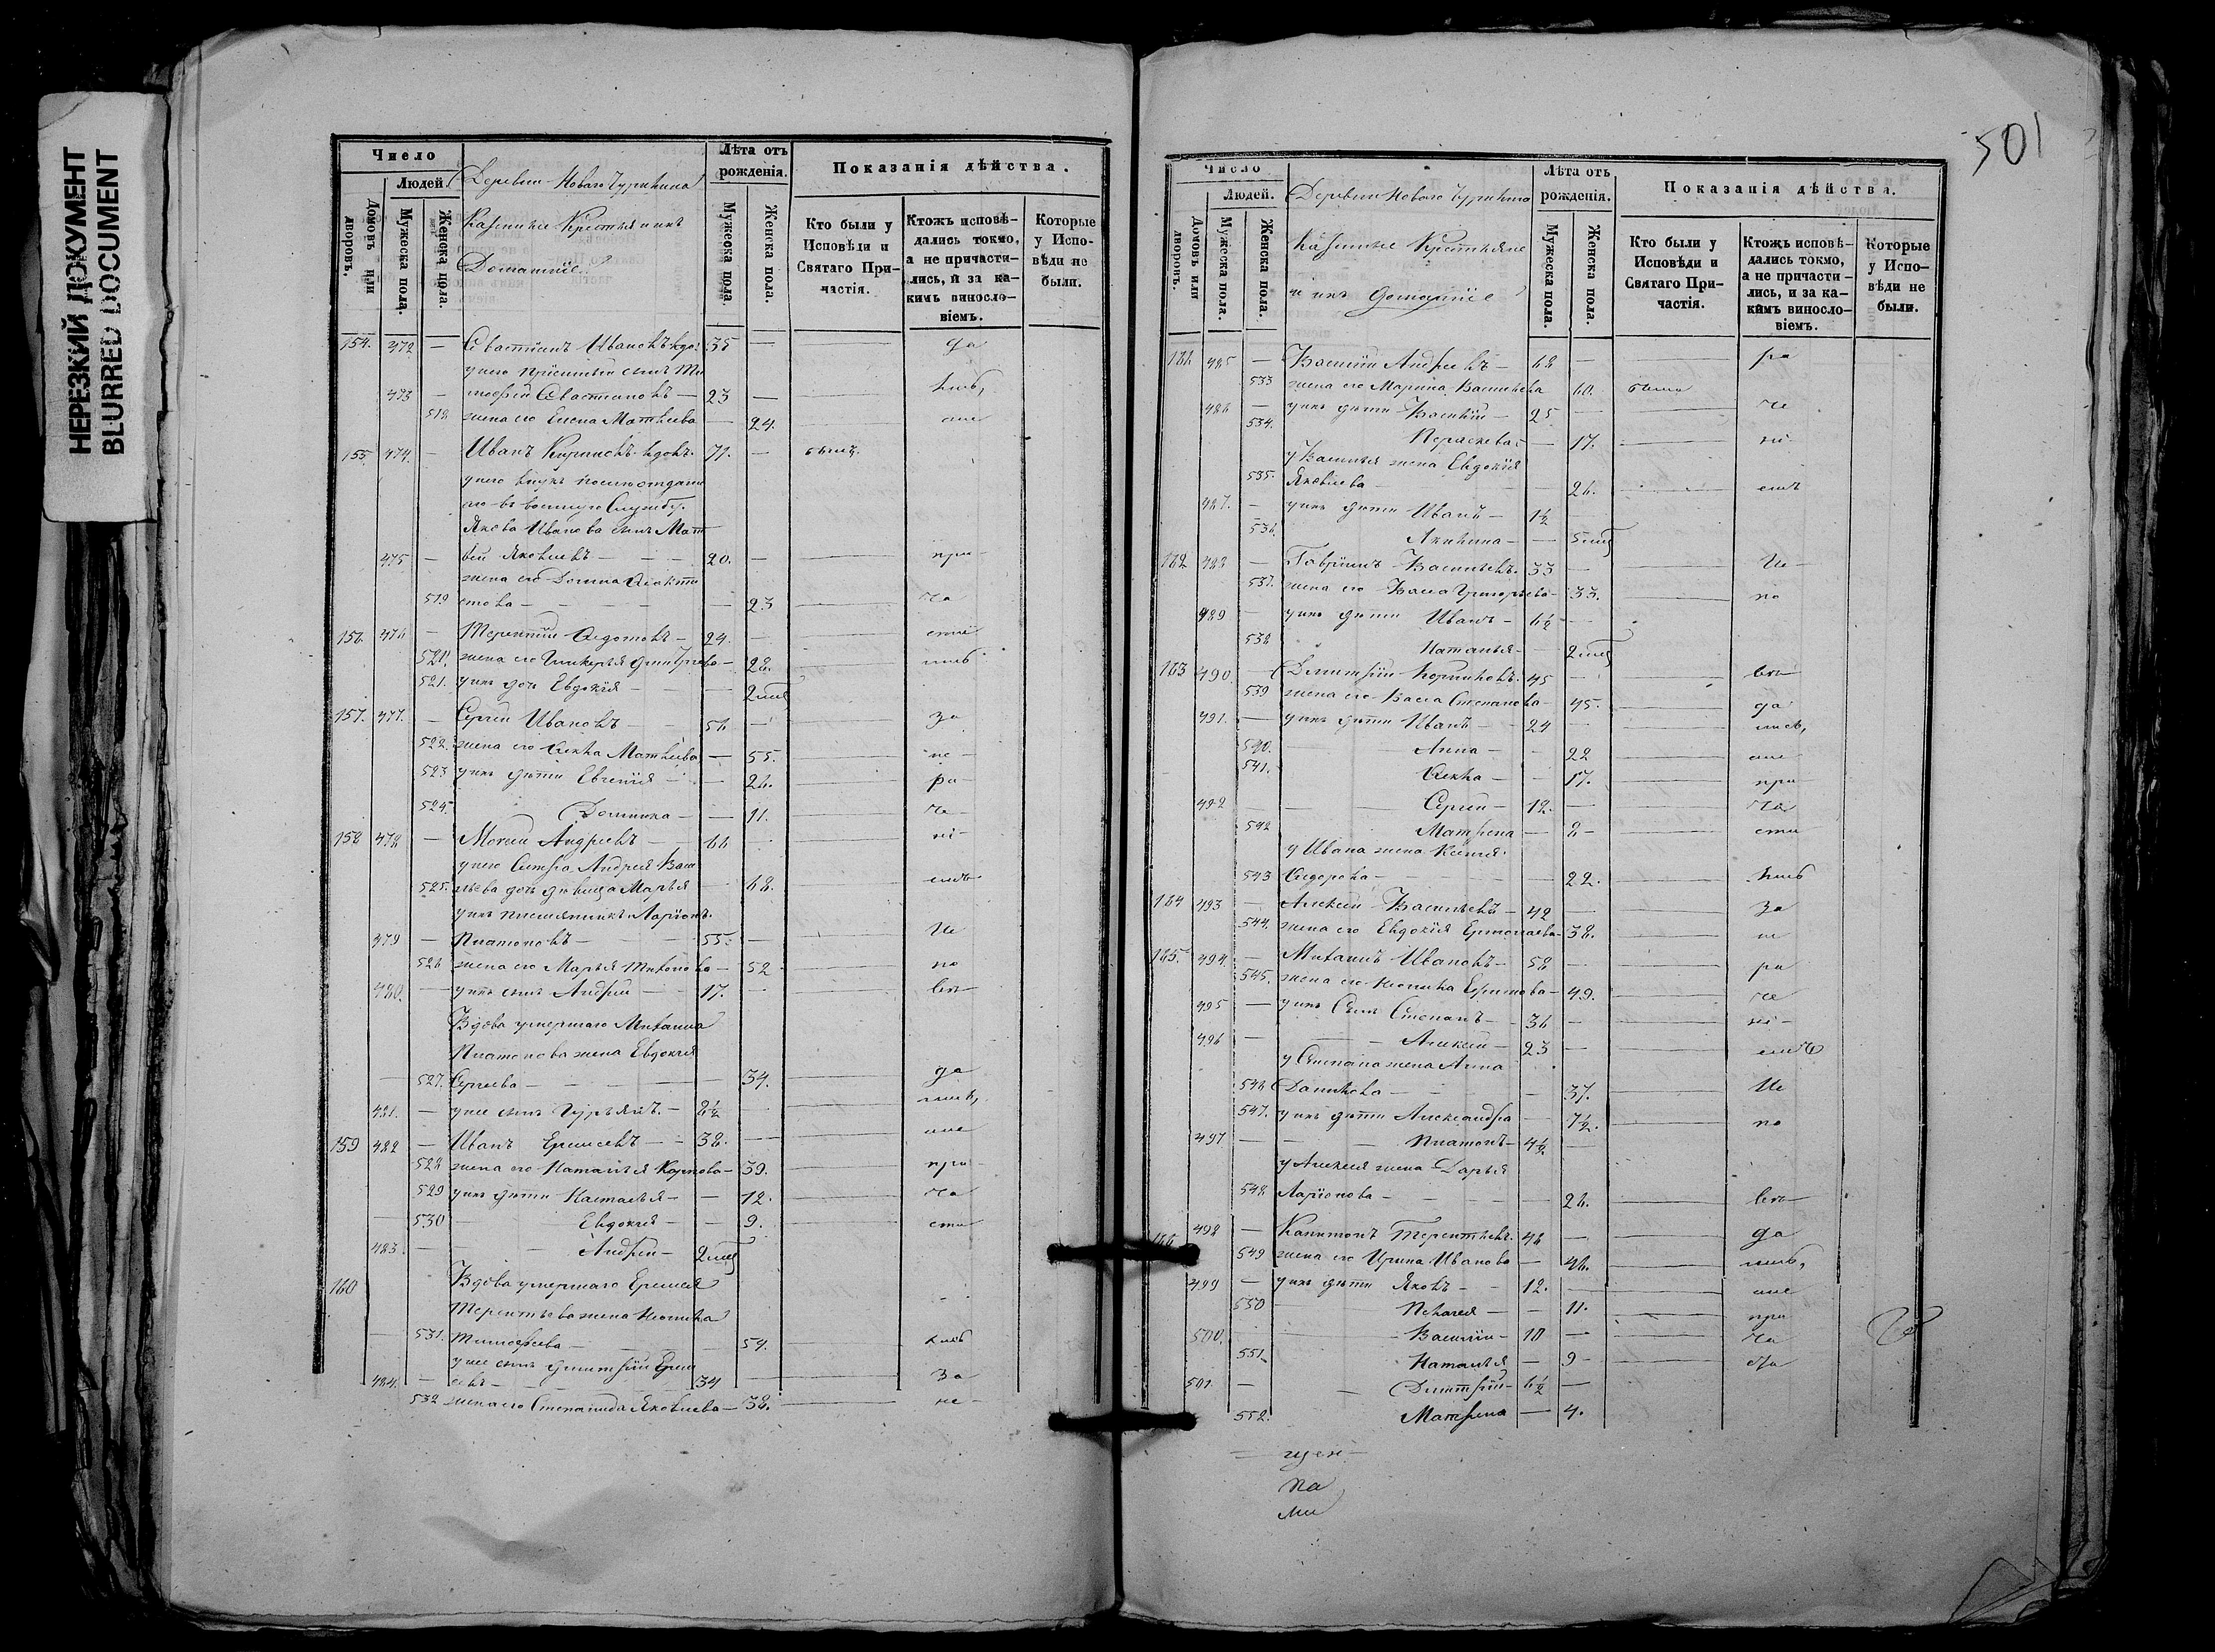 НЕРЕЗКИЙ ДОКУМЕНТ
BLURRED DOCUMENT
Число
Людей.
Домовъ или дворовъ.
Мужеска пола.
Женска пола.
Деревни Новаго Чуркина
Казенные Крестьяне и ихъ
Домашніе
Лѣта отъ рожденія.
Мужеска пола.
Женска пола.
Показанія дѣйства.
Кто были у Исповѣди и Святаго Причастія.
Ктожъ исповѣдались токмо, а не причастились, и за какимъ винословіемъ.
Которые у Исповѣди не были.
154. 472 — Севастіанъ Ивановъ вдо: 35 — да
у него пріемный сынъ Ти
473 — мофей Севастіановъ — 23 —
518 жена его Елена Матвѣева — 24.
155 474. — Иванъ Кириловъ вдовъ. 71. —
у него внукъ послѣ отданн
аго въ военную службу.
Якова Иванова сынъ Мат
475 — вей Яковлевъ — 20. — при
жена его Домна Ѳеокти
519 стова — 23 ча
156. 476 — Терентій Ѳедотовъ — 24. —
жена его Гликерья Дмитріева — 28.
521. у нихъ дочь Евдокія — 2 мѣс
157. 477. — Сергій Ивановъ — 56 — за
522. жена его Ѳекла Матвѣева — 55. не
523 у нихъ дѣти Евгенія — 26. ра
524. Домника — 11. че
158 478 — Мокей Андреевъ — 66 ні
у него сестра Андрея Васи
525. льева дочь дѣвица Марья — 68.
у нихъ племянникъ Ларіонъ
479 — Платоновъ — 55. — Не
526 жена его Марья Тихонова — 52 по
480. — у нихъ сынъ Андрей — 17.
Вдова умершаго Михаила
Платонова жена Евдокія
527. Сергѣева — 34. да
481. — у нее сынъ Гурьянъ. — 8½
159 482 — Иванъ Ермиевъ — 38. —
528 жена его Наталья Карпова — 39. при
529 у нихъ дѣти Настасья — 12. ча
530 Евдокія — 9. сти
483. — Андрей — 2 мѣс
160 Вдова умершаго Еремея
Терентьева жена Неонила
531. Тимофеева — 54.
у нее сынъ Дмитрій Ерем
484. — еевъ — 34 — за
532 жена его Степанида Яковлева — 38. не
501
Число
Людей.
Домовъ или дворовъ.
Мужеска пола.
Женска пола.
Деревни Новаго Чуркина
Казенные Крестьяне
и ихъ домашніе
Лѣта отъ рожденія.
Мужеска пола.
Женска пола.
Показанія дѣйства.
Кто были у Исповѣди и Святаго Причастія.
Ктожъ исповѣдались токмо, а не причастились, и за какимъ винословіемъ.
Которые у Исповѣди не были.
161 485 — Василій Андреевъ — 68 — ра
533 жена его Марина Васильева 60.
486 — у нихъ дѣти Василій — 25 — че
534. Параскева — 17. ні
у Василья жена Евдокія
535. Яковлева — 26.
487. — у нихъ дѣти Иванъ — 1½
536. Акилина — 5 мѣс
162 488 — Гавріилъ Васильевъ. 33 — Не
537. жена его Васса Григорьева — 33. по
489 — у нихъ дѣти Иванъ — 6½
538 Наталья — 2 мѣс
163 490 — Димитрій Логиновъ. 45 —
539 жена его Васса Степанова — 45. да
491. — у нихъ дѣти Иванъ — 24
540. Анна — 22
541. Ѳекла — 17. при
492 — Сергій — 12. — ча
542 Матрена — 8 сти
у Ивана жена Ксенія
543 Сидорова — 22.
164 493 — Алексей Васильевъ — 42 за
544. жена его Евдокія Ермолаева — 38. не
165. 494. — Михаилъ Ивановъ — 58 — ра
545. жена его Неонила Ефимова — 49. че
495 — у нихъ сынъ Степанъ — 36 — ні
496 — Алексей — 23
у Степана жена Анна
546 Данилова — 37. Не
547. у нихъ дѣти Александра — 7½. по
497 — Платонъ — 4½
у Алексея жена Дарья
548 Ларіонова — 26.
166 498 — Капитонъ Терентьевъ. 46 — да
549 жена его Ирина Иванова — 46.
499 — у нихъ дѣти Яковъ — 12.
550 Пелагея — 11. при
500. Василій — 10 — ча
551. Наталья — 9
501. — Димитрій — 6½ —
552. Матрена — 4.
щен
на
ми